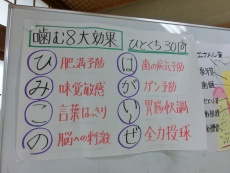 噛む8大効果 ひとくち30回
ひ 肥満予防
み 味覚敏感
こ 言葉はっきり
の 脳への刺激
は 歯の病気予防
が ガン予防
い 胃腸快調
ぜ 全力投球